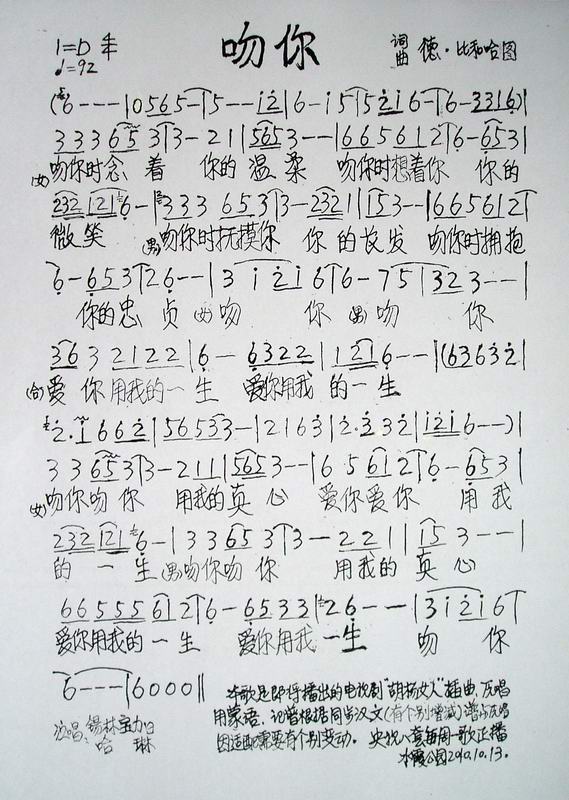 1=D 4/4
♩=92
吻你
词曲 德·比和哈图
(6 - - - | 0 5 6 5 - | 5 - - i 2 | 6 - i 5 | 5 2 i 6 - | 6 - 3 3 1 6) |
3 3 3 6 5 3 | 3 - 2 1 | 5 6 5 3 - - | 6 6 5 6 1 2 | 6 - 6 5 3 |
(女)吻你时念着 你的温柔 吻你时想着你 你的
2 3 2 1 2 1 6 - | 3 3 3 6 5 3 | 3 - 2 3 2 1 | 1 5 3 - - | 6 6 5 6 1 2 |
微笑 (男)吻你时抚摸你 你的长发 吻你时拥抱
6 - 6 5 3 | 2 6 - - | 3 i 2 i 6 | 6 - 7 5 | 3 2 3 - - |
你的忠贞 (女)吻 你 (男)吻 你
3 6 3 2 1 2 2 | 6 - 6 3 2 2 | 1 2 1 6 - - | (6 3 6 3 2 |
(合)爱你用我的一生 爱你用我的一生
2 · 1 6 6 2 | 5 6 5 3 3 - | 2 1 6 3 | 2 · 3 3 2 | i 2 i 6 - -) |
3 3 6 5 3 | 3 - 2 1 1 | 5 6 5 3 - - | 6 5 6 1 2 | 6 - 6 5 3 |
(女)吻你吻你 用我的真心 爱你爱你 用我
2 3 2 1 2 1 6 - | 3 3 6 5 3 | 3 - 2 2 1 | 1 5 3 - - |
的一生 (男)吻你吻你 用我的真心
6 6 5 5 5 6 1 2 | 6 - 6 5 3 3 | 2 6 - - | 3 i 2 i 6 |
爱你用我的一生 爱你用我一生 吻 你
6 - - - | 6 0 0 0 ||
本歌是即将播出的电视剧"胡杨女人"插曲,原唱
用蒙语。记谱根据同步汉文(有个别增减)谱与原唱
因适配需要有个别变动。央视八套每周一歌正播
水霞公园2010.10.13.
演唱:锡林宝力日
哈 琳